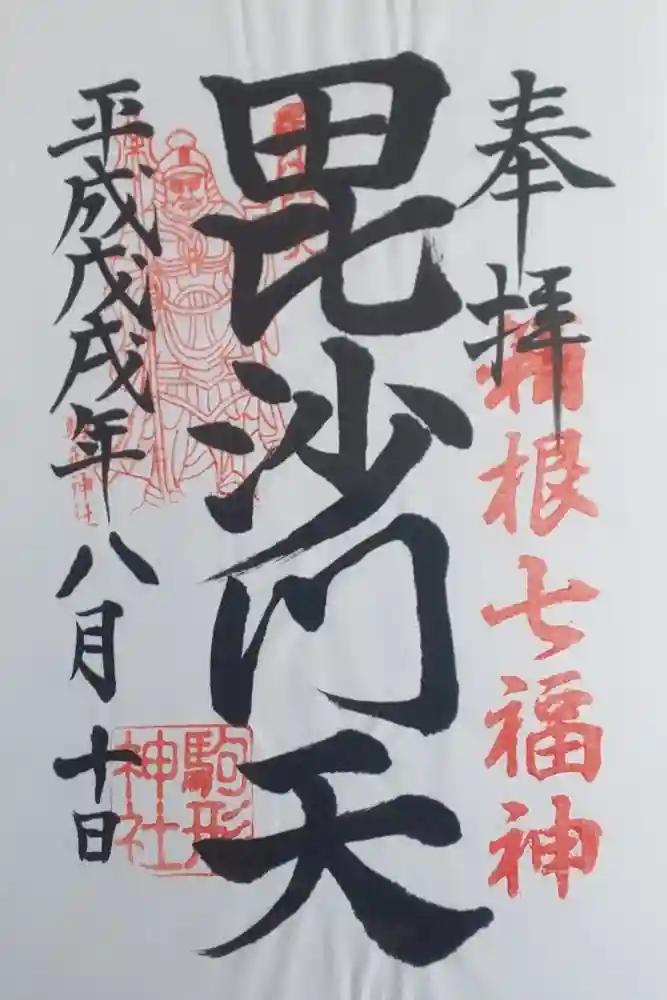 奉拝
箱根七福神
毘沙門天
駒形
神社
平成戊戌年八月十日